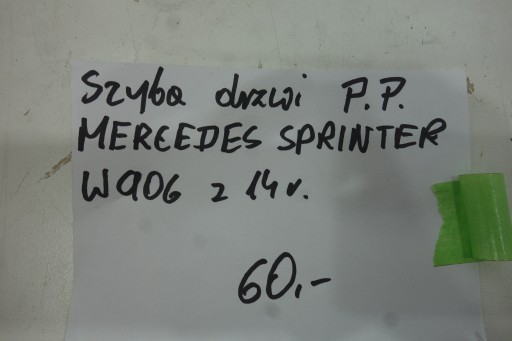 Szyba drzwi P.P.
MERCEDES SPRINTER
W906 z 14r.
60,-